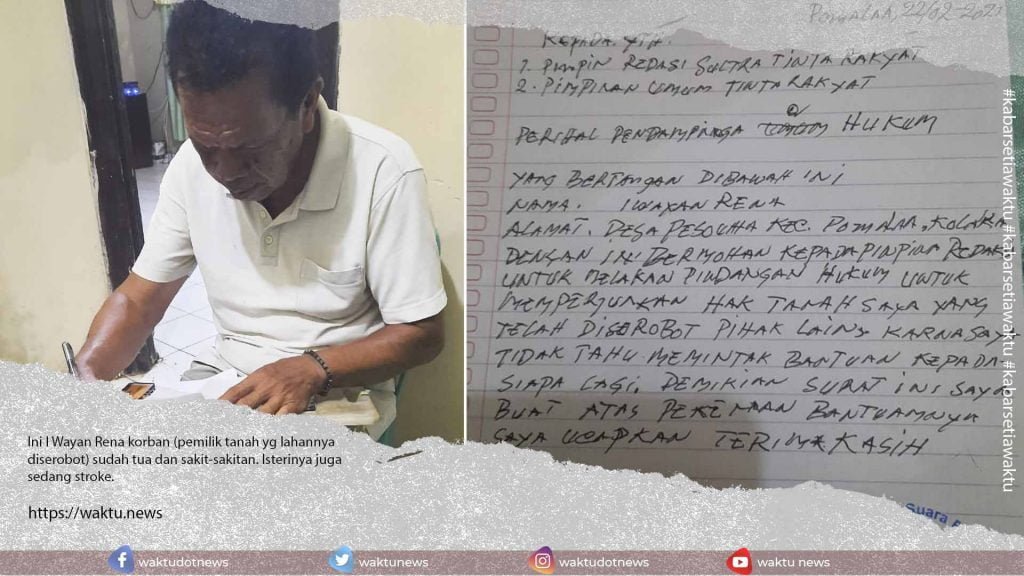 Pomalaa, 22/02-2021
KEPADA. YTH.
1. PIMPIN REDASI SULTRA TINTA RAKYAT
2. PIMPINAN UMUM TINTA RAKYAT
PERIHAL PENDAMPINGA HUKUM
YANG BERTANGAN DIBAWAH INI
NAMA. I WAYAN RENA
ALAMAT. DESA PESOUHA KEC. POMALAA, KOLAKA
DENGAN INI BERMOHON KEPADA PINPIM REDAK
UNTUK MELAKAN PINDANGAN HUKUM UNTUK
MEMPERJUNKAN HAK TANAH SAYA YANG
TELAH DISEROBOT PIHAK LAINY KARNA SAYA
TIDAK TAHU MEMINTAK BANTUAN KEPADA
SIAPA LAGI. DEMIKIAN SURAT INI SAYA
BUAT ATAS BANTUAMNYA
SAYA UCAPKAN TERIMA KASIH
Suara
#kabarsetiawaktu #kabarsetiawaktu #kabarsetiawaktu
Ini I Wayan Rena korban (pemilik tanah yg lahannya
diserobot) sudah tua dan sakit-sakitan. Isterinya juga
sedang stroke.
https://waktu.news
waktudotnews
waktunews
waktudotnews
waktu news